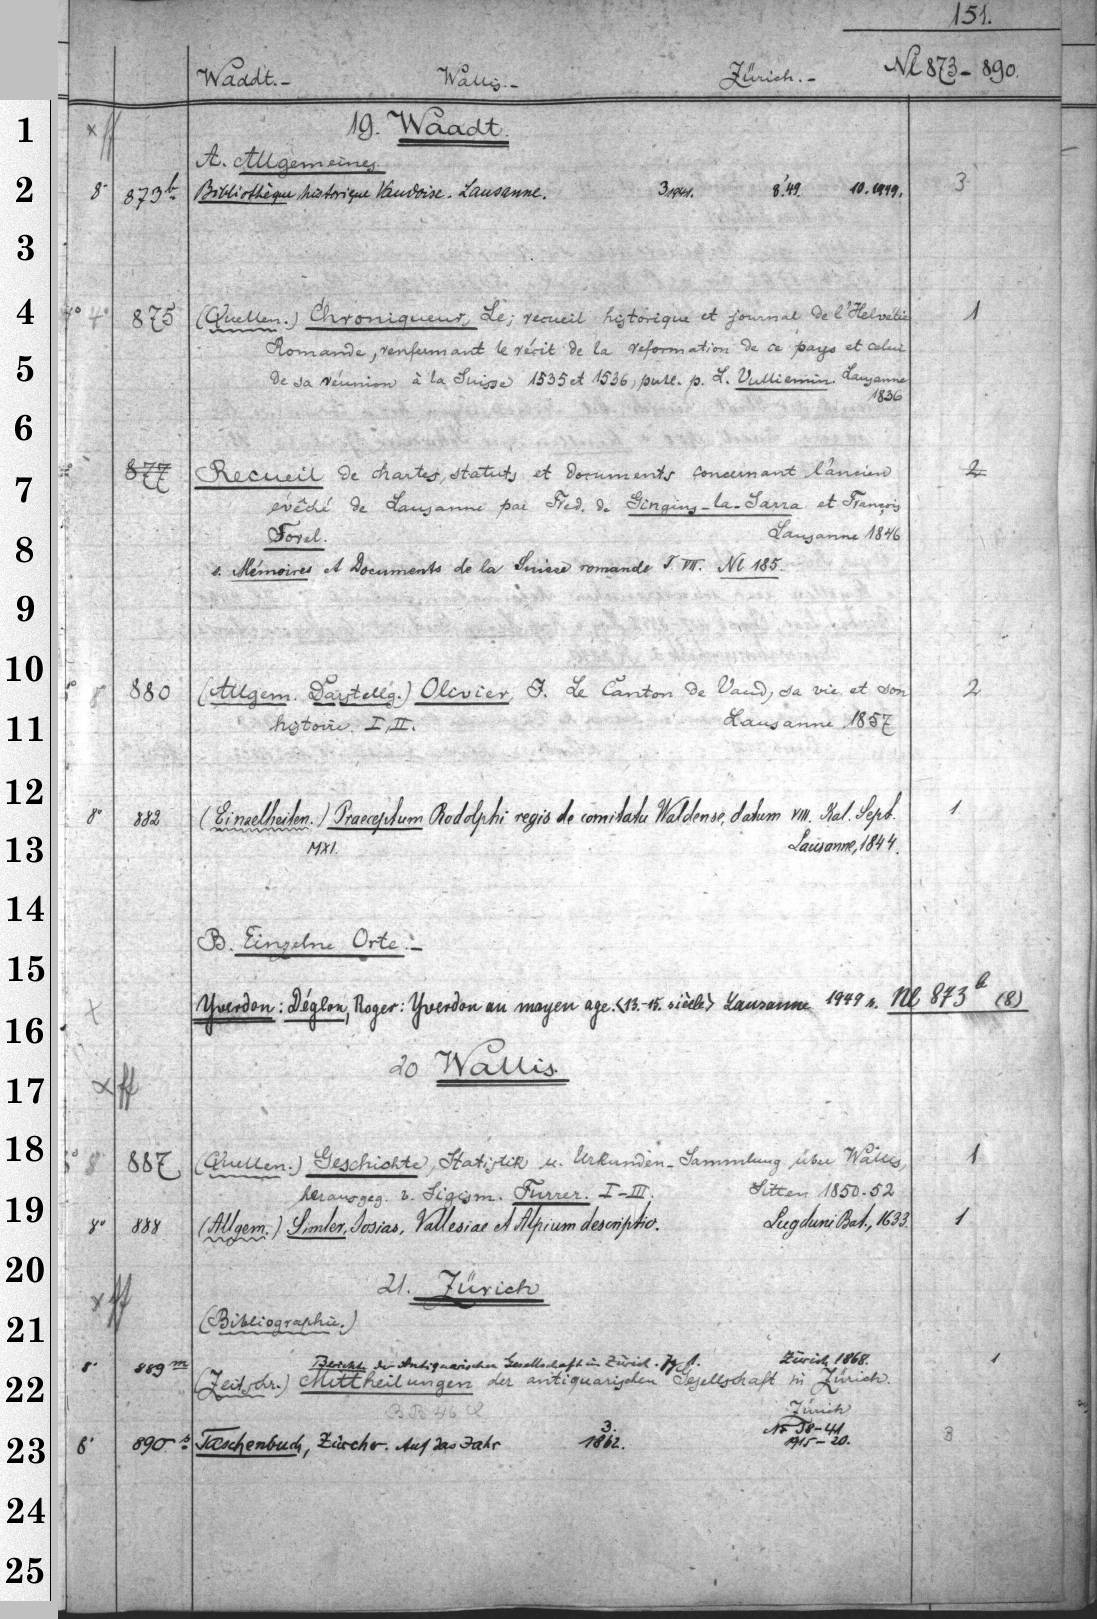 151.
Waadt.- Wallis.- Zürich.- Nl 873-890.
1 19. Waadt.
A. Allgemeines.
2 8° 873 b. Bibliothèque historique Vaudoise. Lausanne. 3 1941. 8'49. 10.1949. 3
3
4 4° 875 (Quellen.) Chroniqueur, Le; recueil historique et journal de l'Helvétie 1
Romande, renfermant le récit de la reformation de ce pays et celui
5 de sa réunion à la Suisse 1535 et 1536, publ. p. L. Vulliemin. Lausanne
1836
6
877 Recueil de chartes, statuts et documents concernant l'ancien 2
7 évêché de Lausanne par Fred. de Gingins-la-Sarra et François
8 Forel. Lausanne 1846
s. Mémoires et Documents de la Suisse romande T. VII. Nl 185.
9
10 8° 880 (Allgem. Darstellg.) Olivier, J. Le Canton de Vaud, sa vie et son 2
11 histoire. I, II. Lausanne 1857
12 8° 882 (Einzelheiten.) Praeceptum Rodolphi regis de comitatu Waldense, datum VIII. Kal. Sept. 1
13 MXI. Lausanne, 1844.
14
B. Einzelne Orte.-
15
16 Yverdon: Déglon, Roger: Yverdon au moyen age. <13.-15. siècle> Lausanne 1949 s. Nl 873 b (8)
20 Wallis.
17
18 8° 887 (Quellen.) Geschichte, Statistik u. Urkunden-Sammlung über Wallis, 1
herausgeg. v. Sigism. Furrer. I-III. Sitten 1850-52
19 8° 888 (Allgem.) Simler, Josias, Vallesiae et Alpium descriptio. Lugduni Bat., 1633. 1
20 21. Zürich
21 (Bibliographie.)
8° 889 m Bericht der Antiquarischen Gesellschaft in Zürich. Zürich, 1868. 1
22 (Zeitschr.) Mittheilungen der antiquarischen Gesellschaft in Zürich.
Zürich
23 8° 890 Taschenbuch, Zürcher. Auf das Jahr 3. 1862. N° 38-41 3
1915-20.
24
25